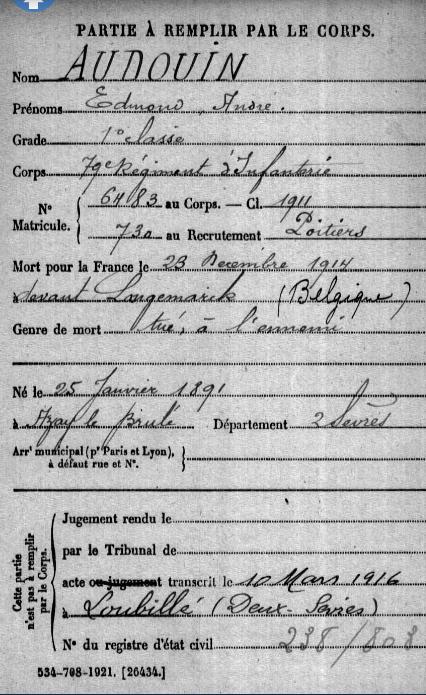 PARTIE À REMPLIR PAR LE CORPS.
Nom AUDOUIN
Prénoms Edmond, André.
Grade 1e classe
Corps 79e Régiment d'Infanterie
N° Matricule. 6483 au Corps. — Cl. 1911
730 au Recrutement Poitiers
Mort pour la France le 23 Décembre 1914
à devant Langemarck (Belgique)
Genre de mort tué, à l'ennemi
Né le 25 Janvier 1891
à Azay le Brulé Département 2 Sèvres
Arrt municipal (pr Paris et Lyon), à défaut rue et N°.
Cette partie n'est pas à remplir par le Corps.
Jugement rendu le
par le Tribunal de
acte ou jugement transcrit le 10 Mars 1916
à Loubillé (Deux-Sèvres)
N° du registre d'état civil 238/803
534-708-1921. [26434.]